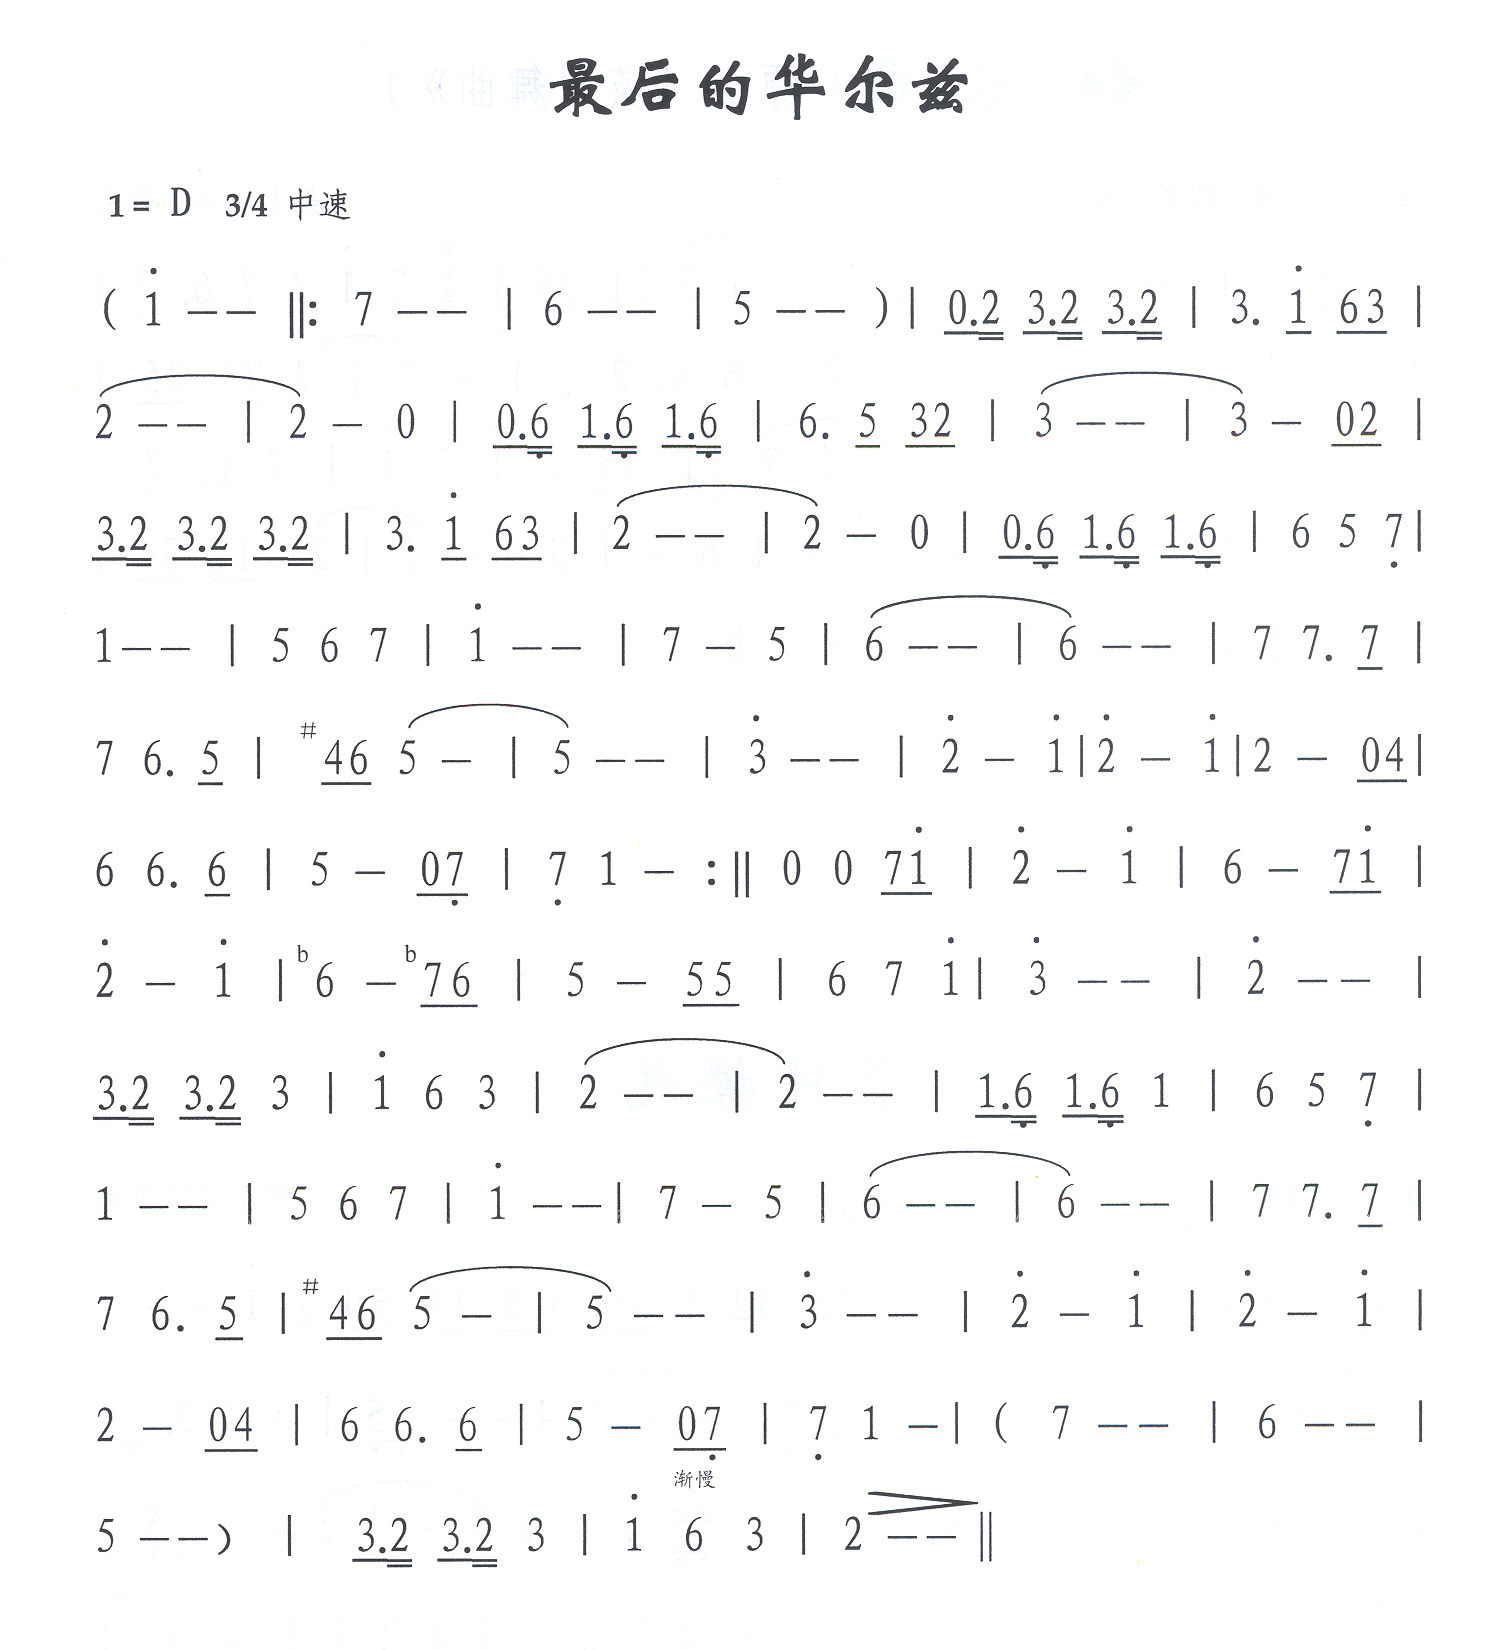 最后的华尔兹
1= D 3/4 中速
( 1̇ — — ‖: 7 — — | 6 — — | 5 — — ) | 0.2 3.2 3.2 | 3. 1̇ 63 |
2 — — | 2 — 0 | 0.6̣ 1.6̣ 1.6̣ | 6. 5 32 | 3 — — | 3 — 02 |
3.2 3.2 3.2 | 3. 1̇ 63 | 2 — — | 2 — 0 | 0.6̣ 1.6̣ 1.6̣ | 6 5 7̣ |
1 — — | 5 6 7 | 1̇ — — | 7 — 5 | 6 — — | 6 — — | 7 7. 7 |
7 6. 5 | #46 5 — | 5 — — | 3̇ — — | 2̇ — 1̇ | 2̇ — 1̇ | 2 — 04 |
6 6. 6 | 5 — 07̣ | 7̣ 1 — :‖ 0 0 71̇ | 2̇ — 1̇ | 6 — 71̇ |
2̇ — 1̇ | b6 — b76 | 5 — 55 | 6 7 1̇ | 3̇ — — | 2̇ — — |
3.2 3.2 3 | 1̇ 6 3 | 2 — — | 2 — — | 1.6̣ 1.6̣ 1 | 6 5 7̣ |
1 — — | 5 6 7 | 1̇ — — | 7 — 5 | 6 — — | 6 — — | 7 7. 7 |
7 6. 5 | #46 5 — | 5 — — | 3̇ — — | 2̇ — 1̇ | 2̇ — 1̇ |
2 — 04 | 6 6. 6 | 5 — 07̣ | 7̣ 1 — | ( 7 — — | 6 — — |
渐慢
5 — — ) | 3.2 3.2 3 | 1̇ 6 3 | 2 — — ‖